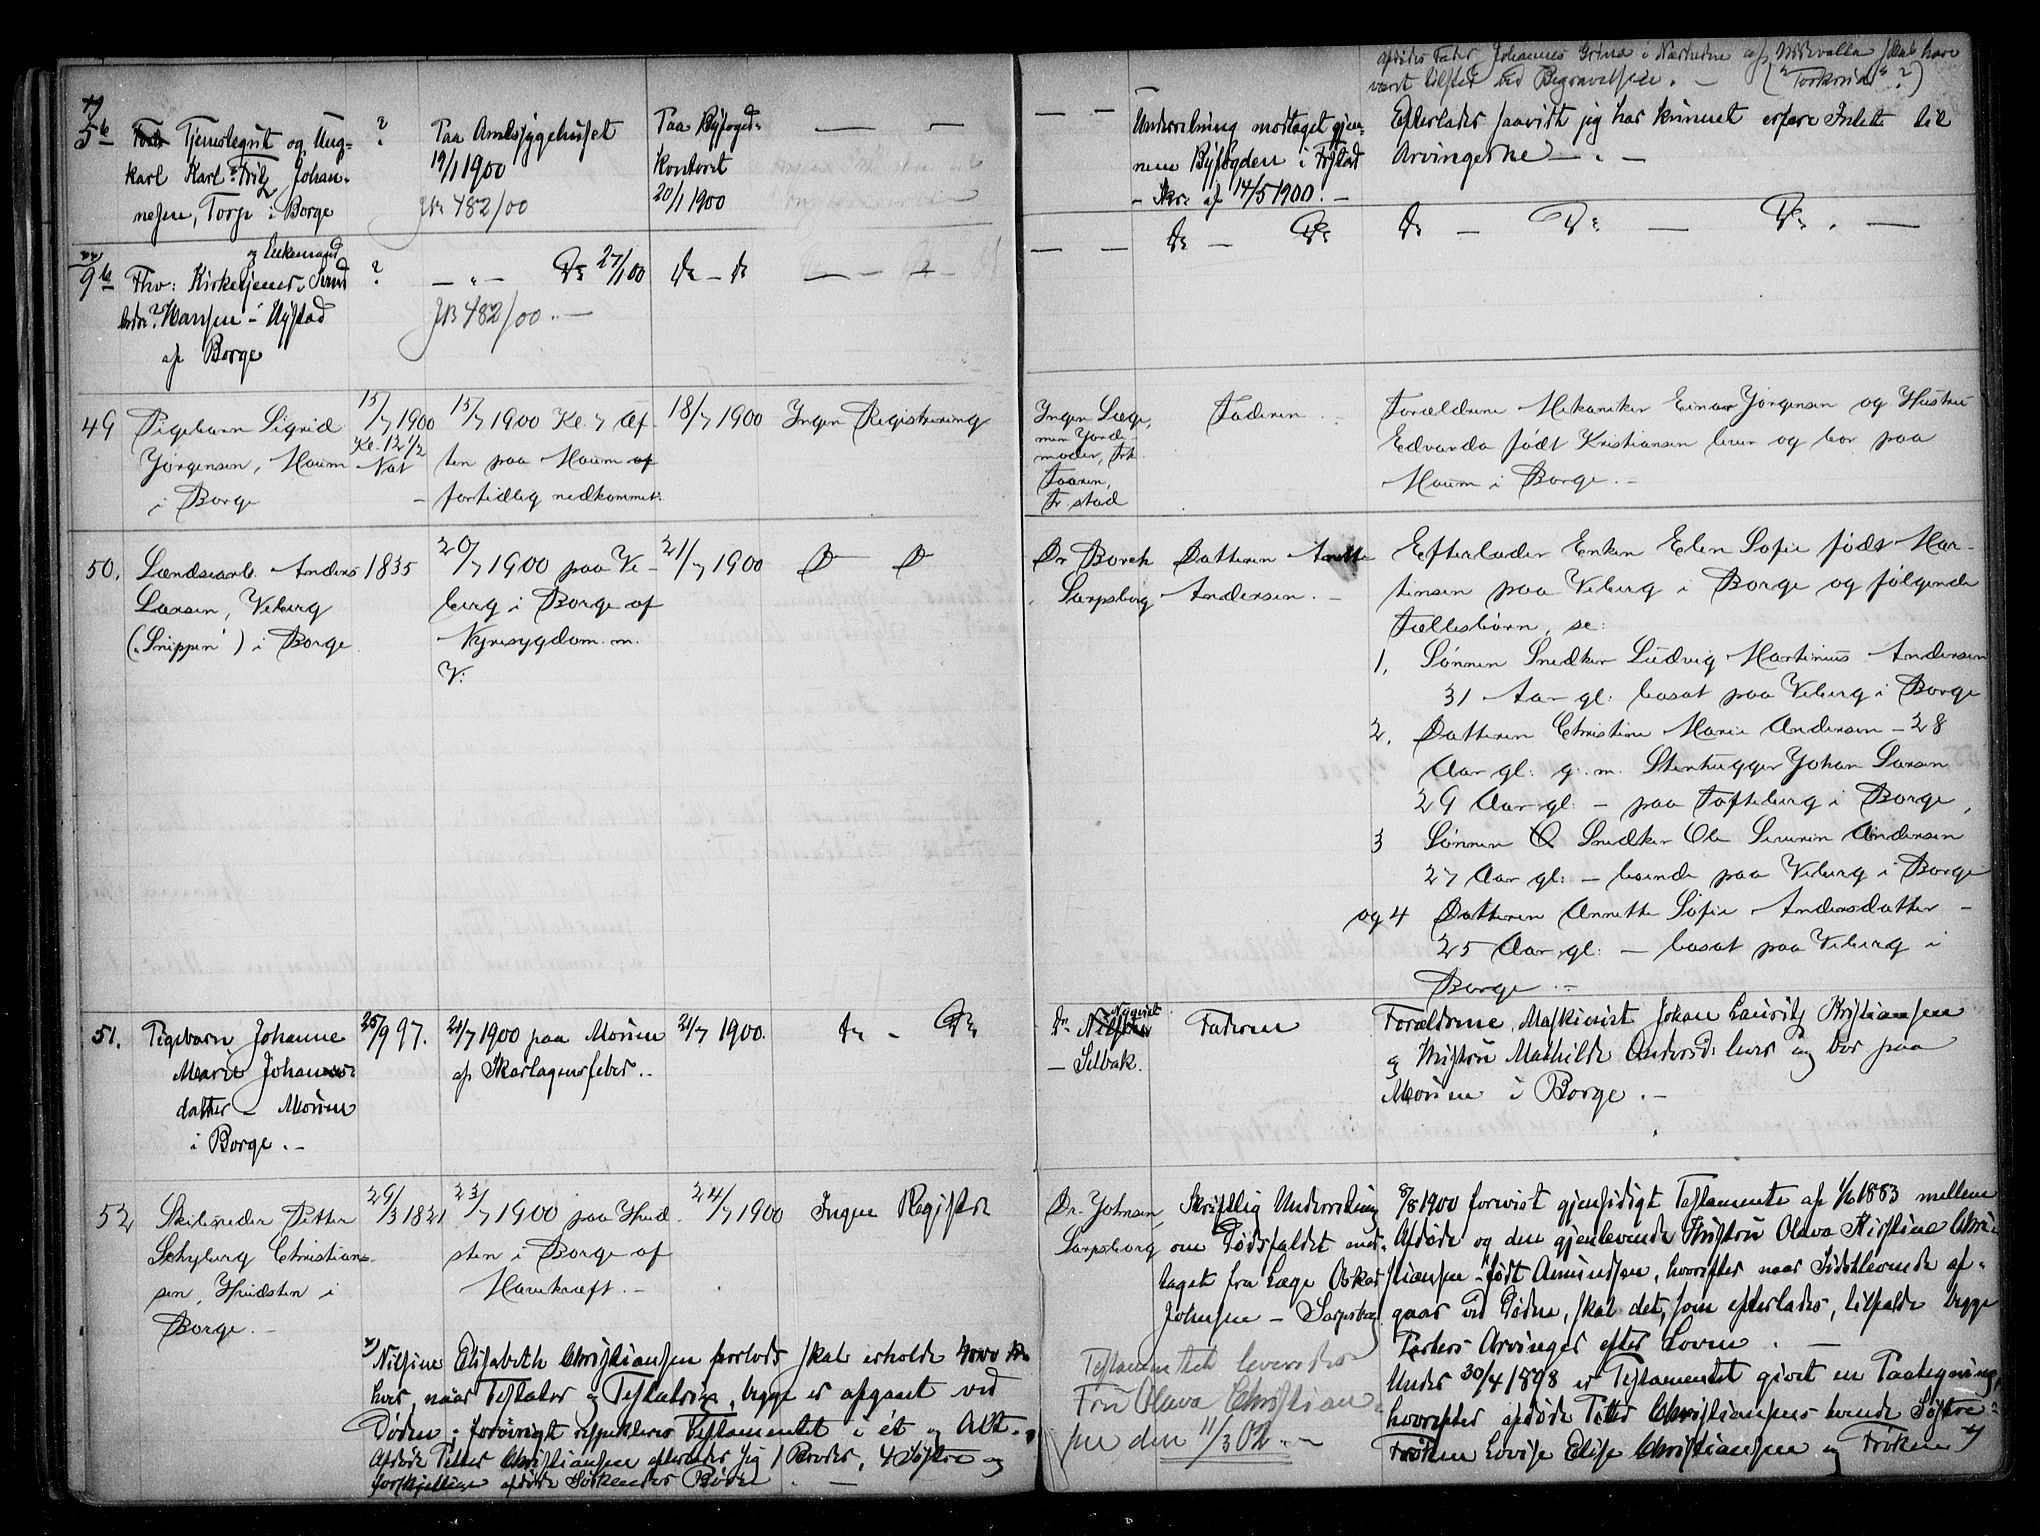 afdødes Fader Johannes Grina i Nærheden af Udevalla skal have
været tilsted ved Begravelsen. — ("Torkrid"?)
5te Tjenestegut og Ung-
karl Karl Fritz Johan-
nesen, Torp i Borge
?
Paa Amtssygehuset
19/1 1900
JN 482/00
Paa Byfoged-
kontoret
20/1 1900
— —
— —
Underretning modtaget gjen-
nem Byfogden i Fr.stad
- Skr: af 14/5 1900. —
Efterlader saavidt jeg har kunnet erfare Intet til
Arvingerne — . —
9de
Fhv: Kirketjener
og Enkemand
Hansen - Nystad
af Borge
?
— " — Do 27/1 00
JN 482/00. —
Do — Do
— — —
— —
Do — Do
Do — Do — Do . —
49 Pigebarn Sigrid
Jørgensen, Moum
i Borge
15/7 1900
Kl. 12 1/2
Nat
15/7 1900 Kl. 7 Af-
ten paa Moum af
fortidlig nedkommet.
18/7 1900
Ingen Registrering
Ingen Læge,
men Jorde-
moder, Frk
Faaren,
Fr.stad
Faderen
Forældrene Mekaniker Einar Jørgensen og Hustru
Edvarda født Kristiansen lever og bor paa
Moum i Borge. —
50. Lændsearb. Anders
Larsen, Viberg
("Snippen") i Borge
1835
20/7 1900 paa Vi-
berg i Borge af
Nyresygdom m.
V.
21/7 1900
D D
Dr Borch
Sarpsborg
Datteren Anette
Andersen. —
Efterlader Enken Elen Sofie født Mar-
tinsen paa Viberg i Borge og følgende
Fællesbørn, se:
1, Sønnen Snedker Ludvig Martinius Andersen
31 Aar gl: bosat paa Viberg i Borge
2. Datteren Christine Marie Andersen — 28
Aar gl: g. m. Stenhugger Johan Larsen
29 Aar gl: — paa Tofteberg i Borge,
3 Sønnen Snedker Ole Severin Andersen
27 Aar gl: — boende paa Viberg i Borge
og 4 Datteren Annette Sofie Andersdatter —
25 Aar gl: — bosat paa Viberg i
Borge. —
51. Pigebarn Johanne
Marie Johans-
datter — Moum
i Borge. —
25/9 97.
21/7 1900 paa Moum
af Skarlagensfeber. —
21/7 1900.
Do — Do
Dr Nyqvist
— Selbak.
Faderen
Forældrene, Maskinist Johan Lauritz Kristiansen
og Hustru Mathilde Andersd: lever og bor paa
Moum i Borge. —
52 Skibsreder Petter
Schyberg Christian-
sen, Hudsten i
Borge. —
29/3 1821
23/7 1900 paa Hud-
sten i Borge af
Mavekræft. —
24/7 1900
Ingen Registr.
Dr. Johnsen,
Sarpsborg
Skriftlig Underretning
om Dødsfaldet mod-
taget fra Læge Oskar
Johnsen — Sarpsborg
8/8 1900 forevist gjensidigt Testamente af 1/6 1883 mellem
Afdøde og den gjenlevende Hustru Olava Kristine Chri-
stiansen født Amundsen, hvorefter naar Sidstlevende af-
gaar ved Døden, skal det, som efterlades, tilfalde begge
Parters Arvinger efter Loven . —
Under 30/4 1898 er Testamentet givet en Paategning,
hvorefter afdøde Petter Christiansens tvende Søstre
Frøken Lovise Elise Christiansen og Frøken x)
Testamentet leveredes
Fru Olava Christian-
sen den 11/3 02. —
x) Nilsine Elisabeth Christiansen forlods skal erholde 4000 Kr
hver, naar Testator og Testatrix, begge er afgaaet ved
Døden; forøvrigt respekteres Testamentet i ét og Alt. —
Afdøde Petter Christiansen efterlader sig 1 Broder, 4 Søstre og
forskjellige afdøde Søskendes Børn . —